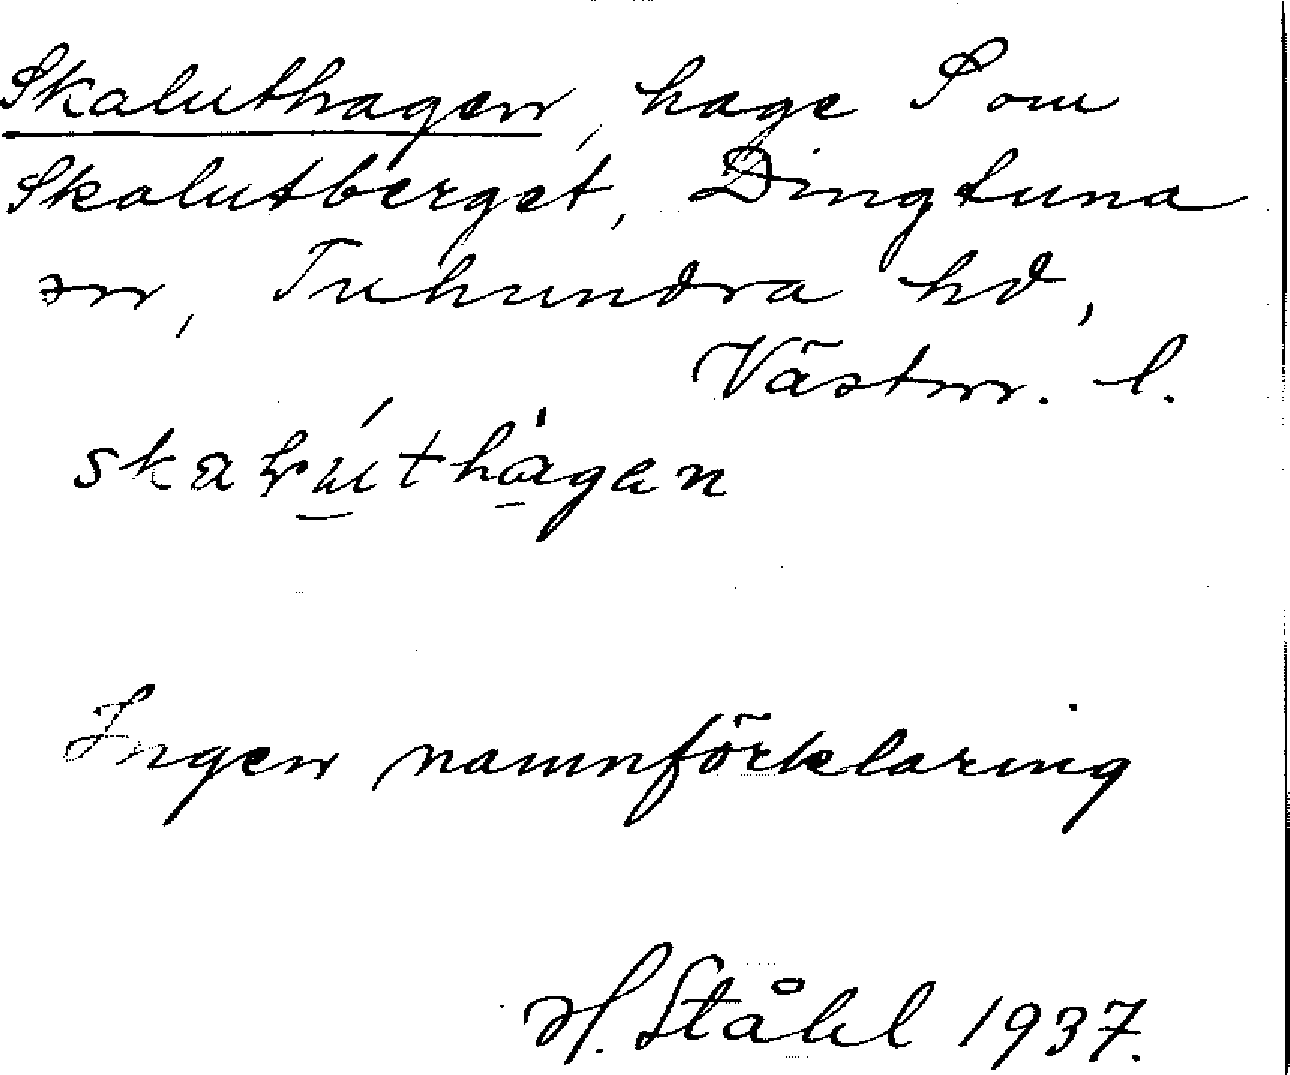 Skaluthagen, hage S om
Skalutberget, Dingtuna
sn, Tuhundra hd,
Västm. l.
skaluthagen
Ingen namnförklaring
H. Ståhl 1937.